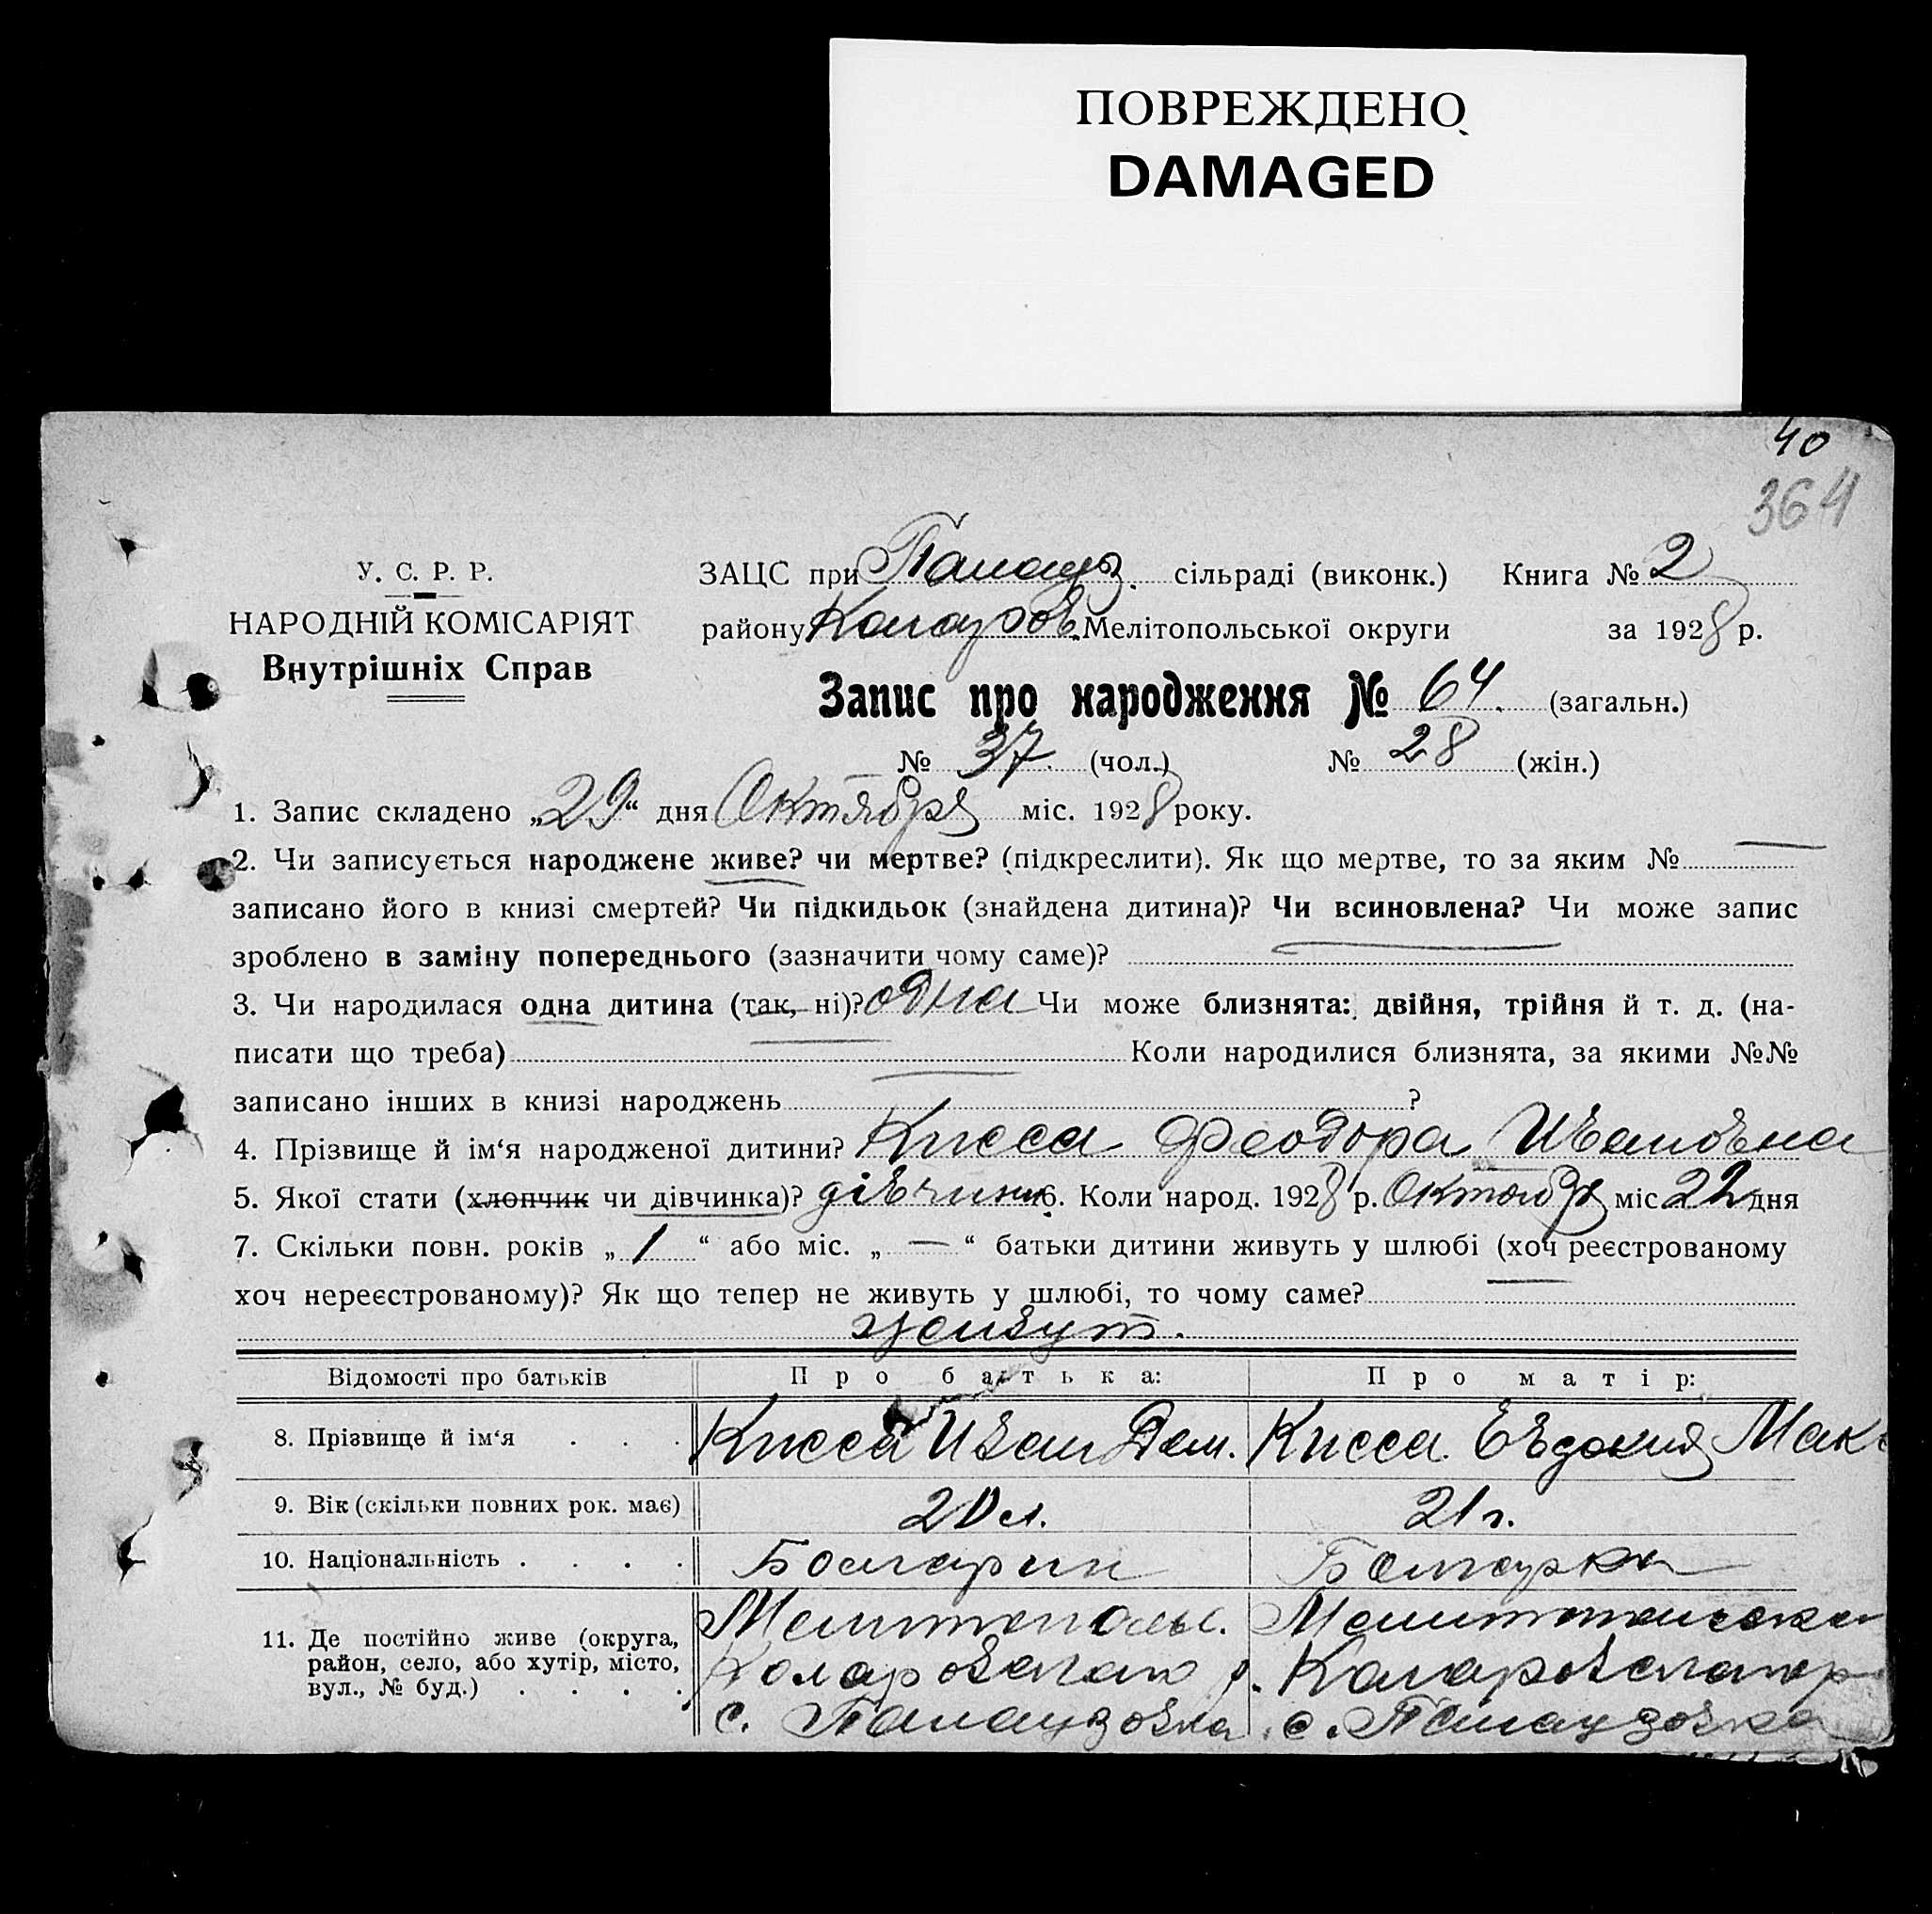 ПОВРЕЖДЕНО
DAMAGED
40
364
У. С. Р. Р.
НАРОДНІЙ КОМІСАРІЯТ
Внутрішніх Справ
ЗАЦС при Палауз. сільраді (виконк.) Книга № 2
району Коларов. Мелітопольської округи за 1928 р.
Запис про народження № 64. (загальн.)
№ 37. (чол.) № 28 (жін.)
1. Запис складено „29“ дня Октября міс. 1928 року.
2. Чи записується народжене живе? чи мертве? (підкреслити). Як що мертве, то за яким № —
записано його в книзі смертей? Чи підкидьок (знайдена дитина)? Чи всиновлена? Чи може запис
зроблено в заміну попереднього (зазначити чому саме)?
3. Чи народилася одна дитина (так, ні)? одна Чи може близнята: двійня, трійня й т. д. (на-
писати що треба) Коли народилися близнята, за якими №№
записано інших в книзі народжень ?
4. Прізвище й ім‘я народженої дитини? Кисса Феодора Ивановна
5. Якої стати (хлопчик чи дівчинка)? дівчинка 6. Коли народ. 1928 р. Октября міс. 22 дня
7. Скільки повн. років „1“ або міс. „—“ батьки дитини живуть у шлюбі (хоч реєстрованому
хоч нереєстрованому)? Як що тепер не живуть у шлюбі, то чому саме?
живут.
Відомості про батьків Про батька: Про матір:
8. Прізвище й ім‘я . . . Кисса Иван Дем. Кисса Евдокия Мак
9. Вік (скільки повних рок. має) 20 л. 21 г.
10. Національність . . . . Болгарин Болгарка
11. Де постійно живе (округа, Мелитополь. Мелитопольска
район, село, або хутір, місто, Коларовский р. Коларовский р
вул., № буд.) . . . . с. Палаузовка с. Палаузовка